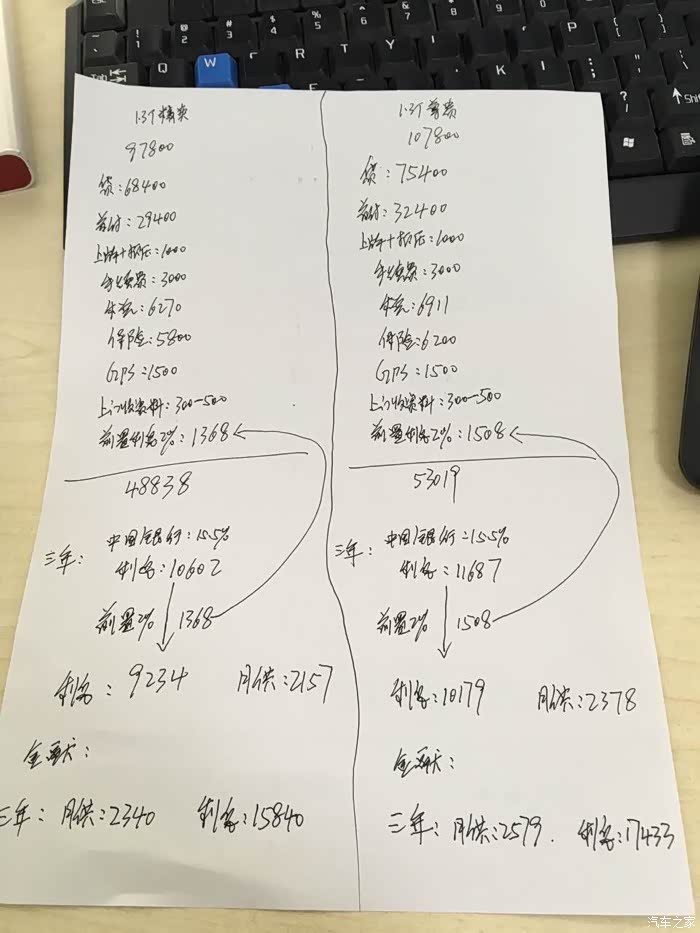 1.3T精英
97800
贷:68400
首付:29400
上牌+抵压:1000
手续费:3000
保险:5800
GPS:1500
上门收资料:300-500
前置利息2%:1368
48838
三年:
中国银行:15.5%
利息:10602
前置2% 1368
利息:9234 月供:2157
三年:月供:2340 利息:15840
1.3T尊贵
107800
贷:75400
首付:32400
上牌+抵压:1000
手续费:3000
:6911
保险:6200
GPS:1500
上门收资料:300-500
前置利息2%:1508
53019
三年:
中国银行:15.5%
利息:11687
前置2% 1508
利息:10179 月供:2378
三年:月供:2579. 利息:17433
汽车之家